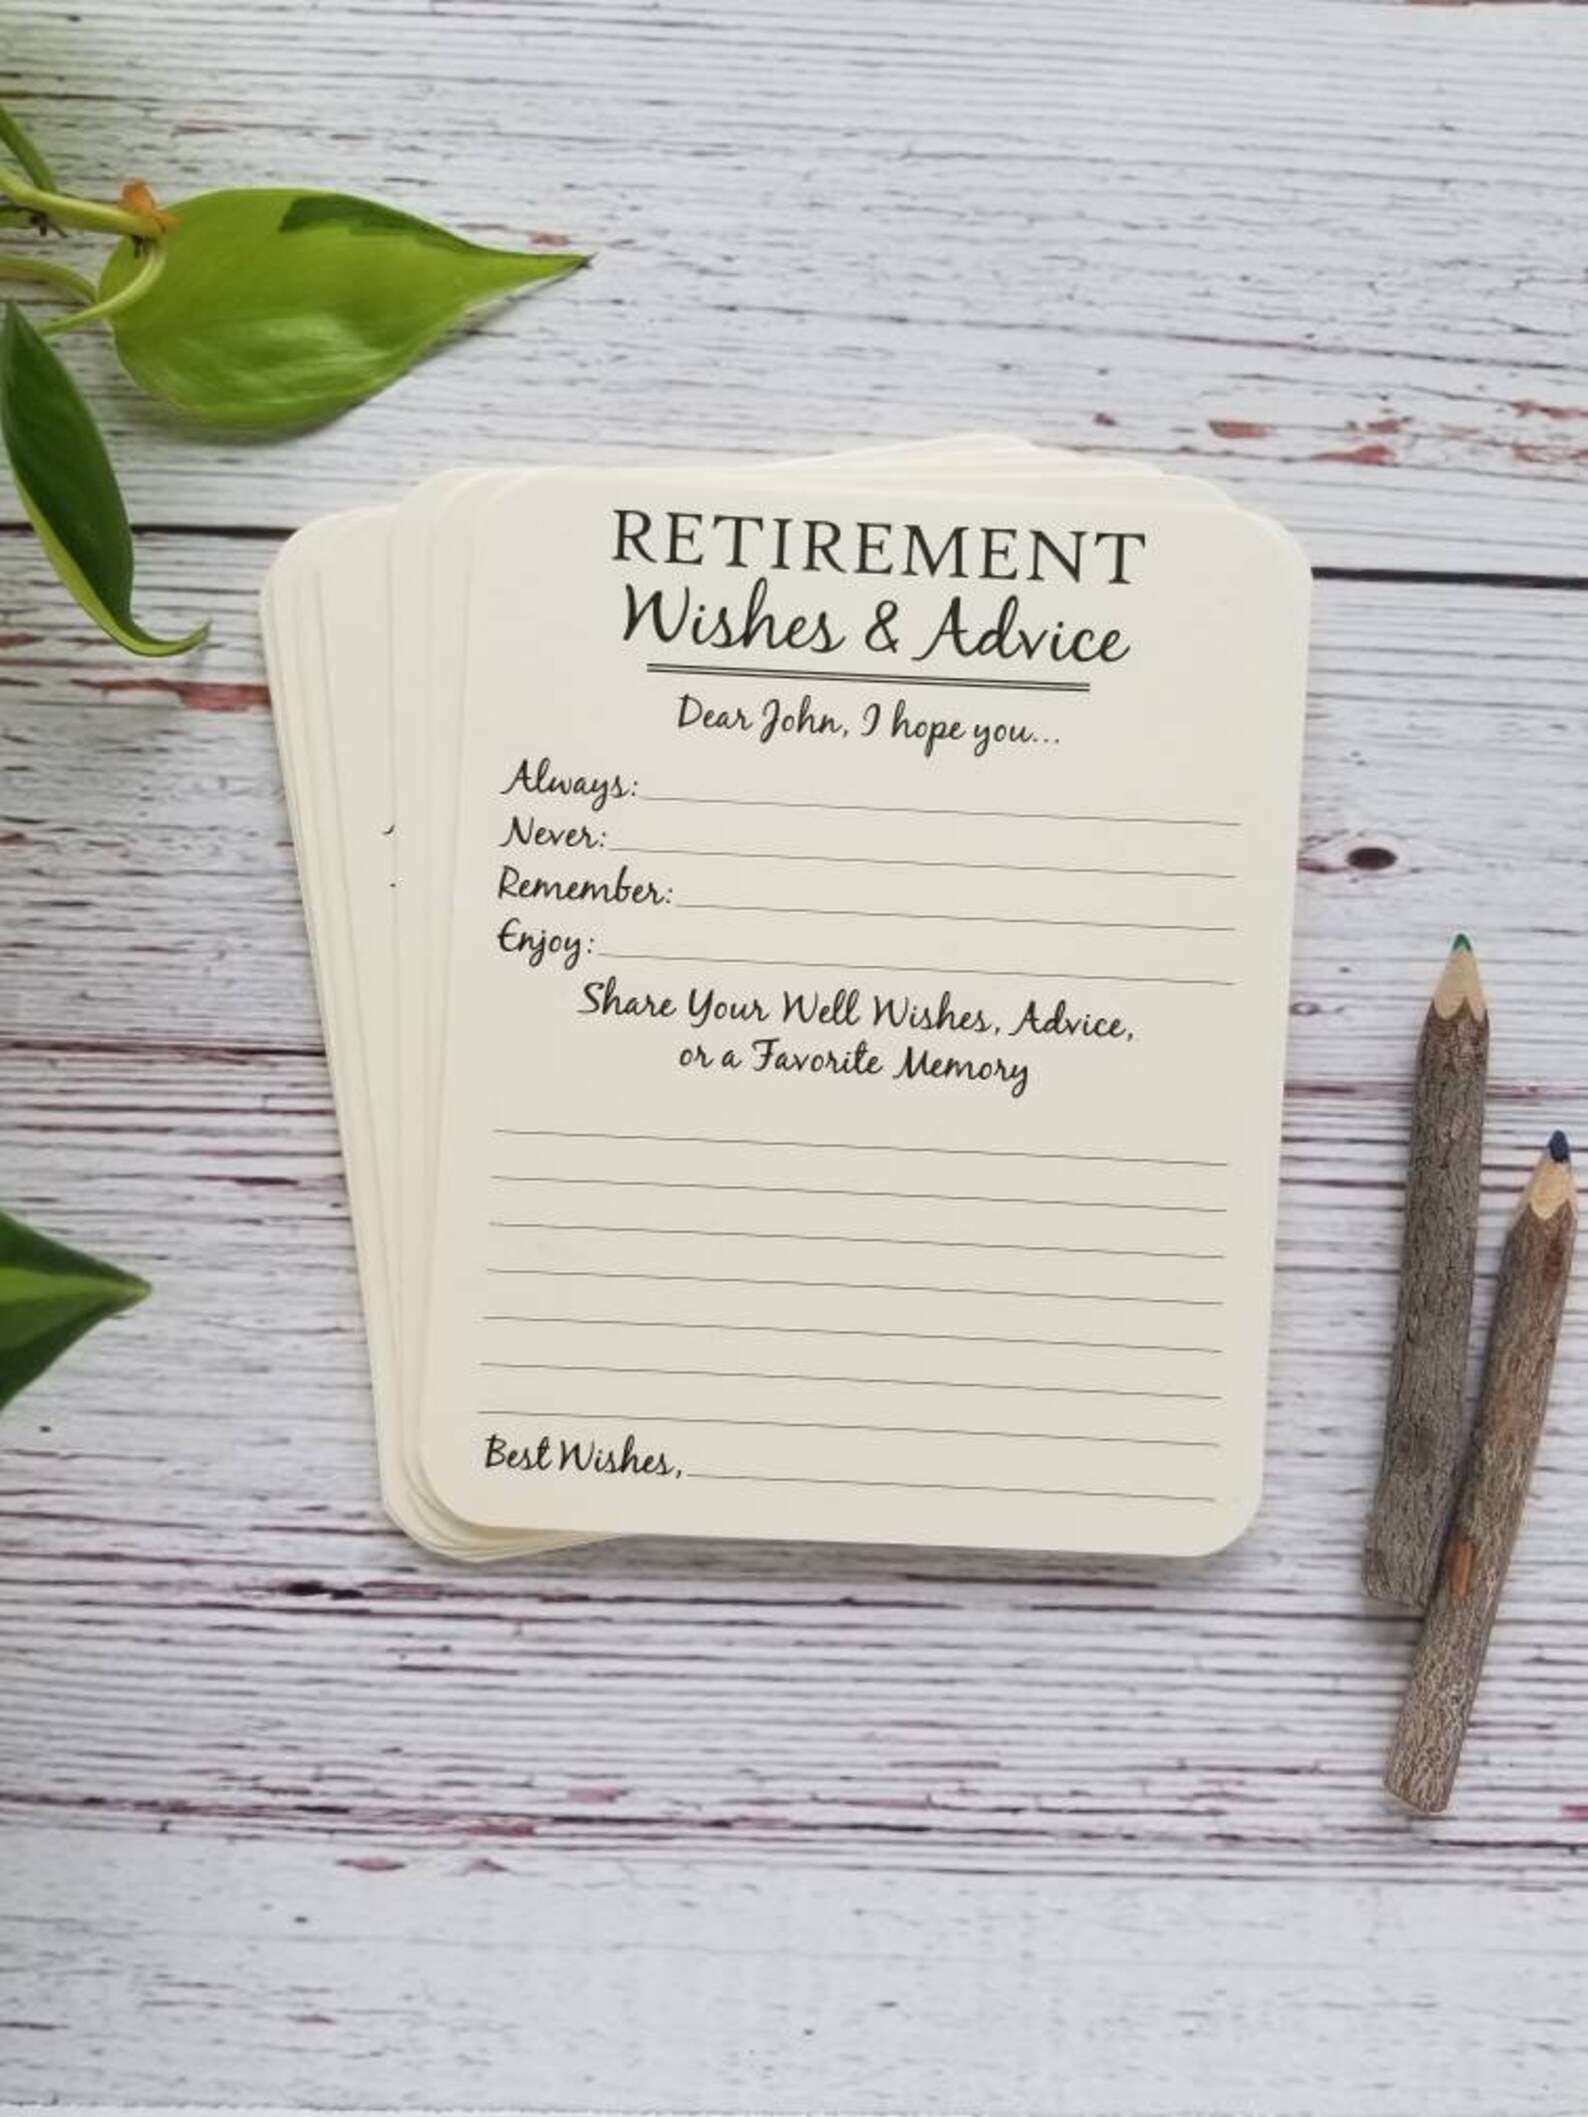 RETIREMENT
Wishes & Advice
Dear John, I hope you...
Always:
Never:
Remember:
Enjoy:
Share Your Well Wishes, Advice,
or a Favorite Memory
Best Wishes,